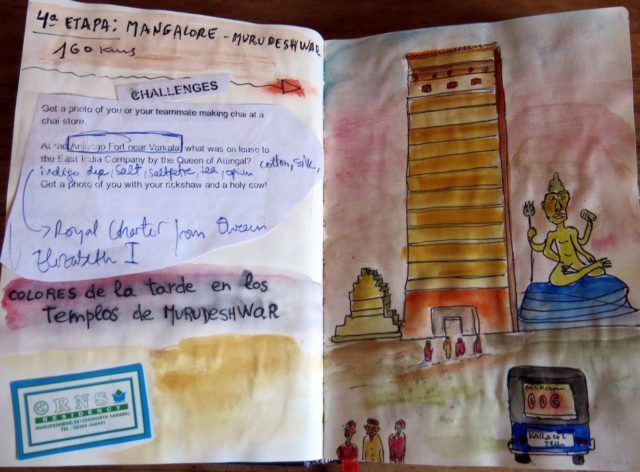 4ª ETAPA: MANGALORE - MURUDESHWAR
160 kms
CHALLENGES
Get a photo of you or your teammate making chai at a
chai store.
At the Anjengo Fort near Varkala, what was on lease to
the East India Company by the Queen of Attingal? cotton, silk,
indigo dye, salt, saltpetre, tea, opium
Get a photo of you with your rickshaw and a holy cow!
Royal Charter from Queen
Elizabeth I
COLORES de la tarde en los
Templos de MURUDESHWAR
RNS
RESIDENCY
006